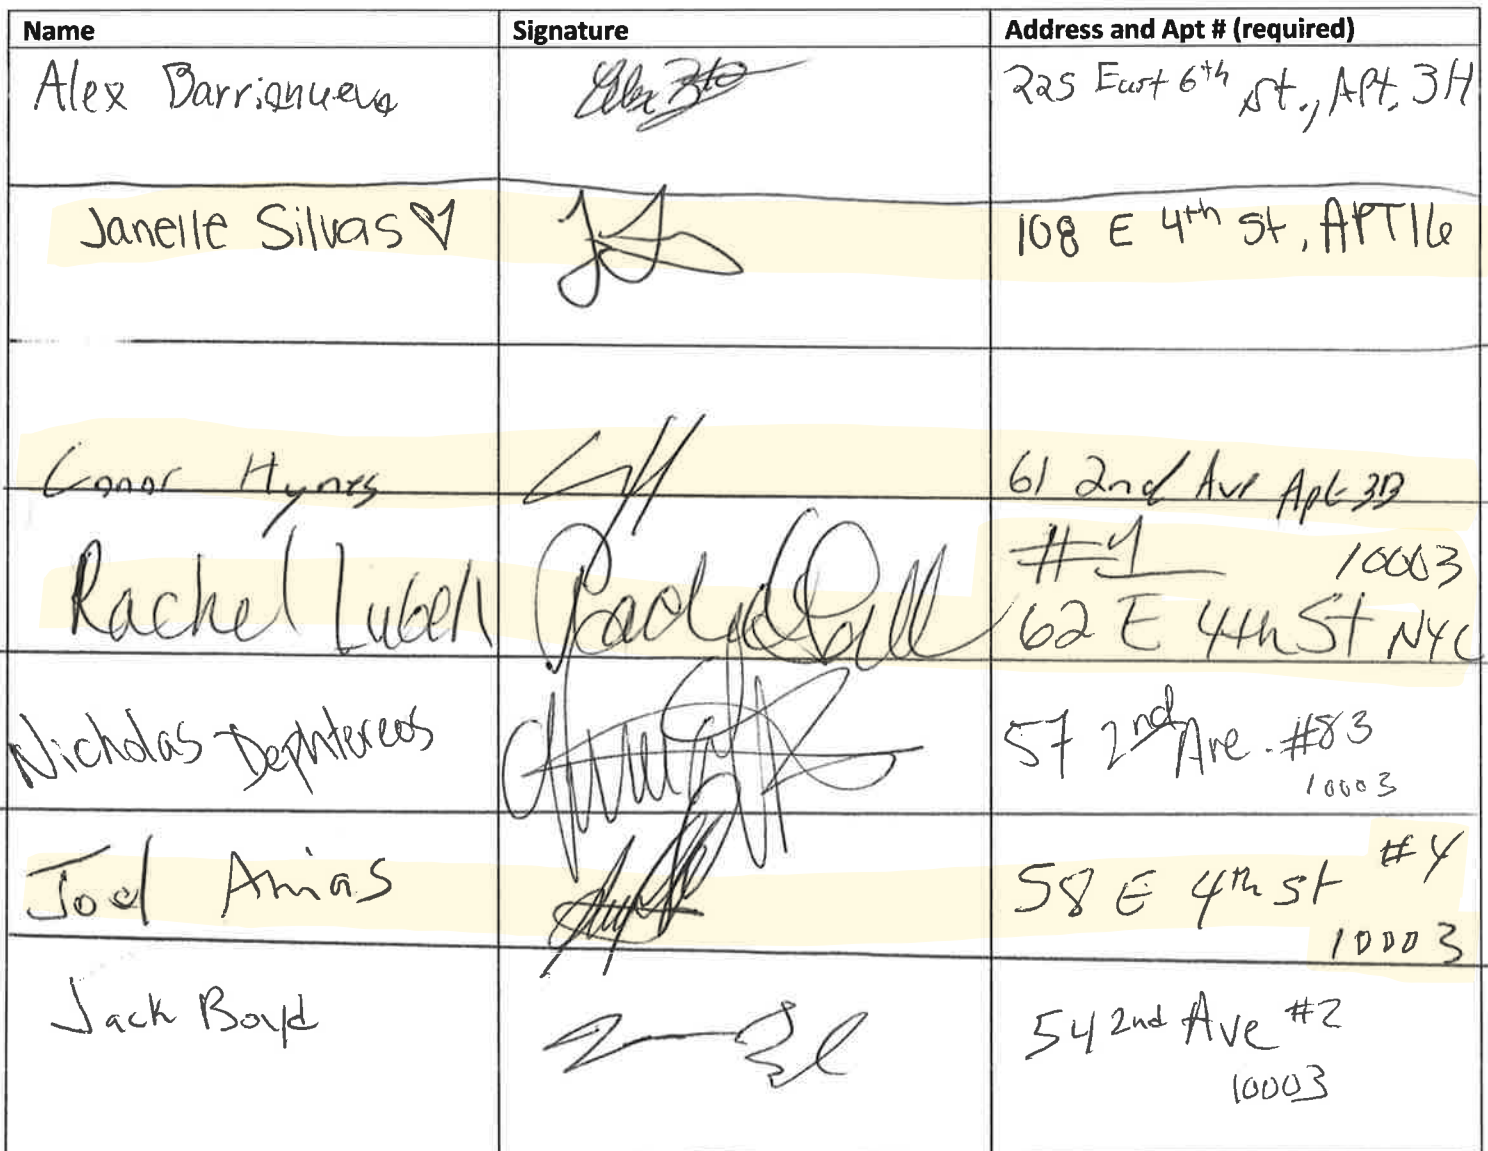 Name Signature Address and Apt # (required)
Alex Barrionuevo 225 East 6th St., Apt. 3H
Janelle Silvas 108 E 4th St, APT 16
Conor Hynes 61 2nd Ave Apt 3B
#1 10003
Rachel Lubell 62 E 4th St NYC
Nicholas Dephtereos 57 2nd Ave. #83
10003
Joel Arias 58 E 4th St #4
10003
Jack Boyd 54 2nd Ave #2
10003